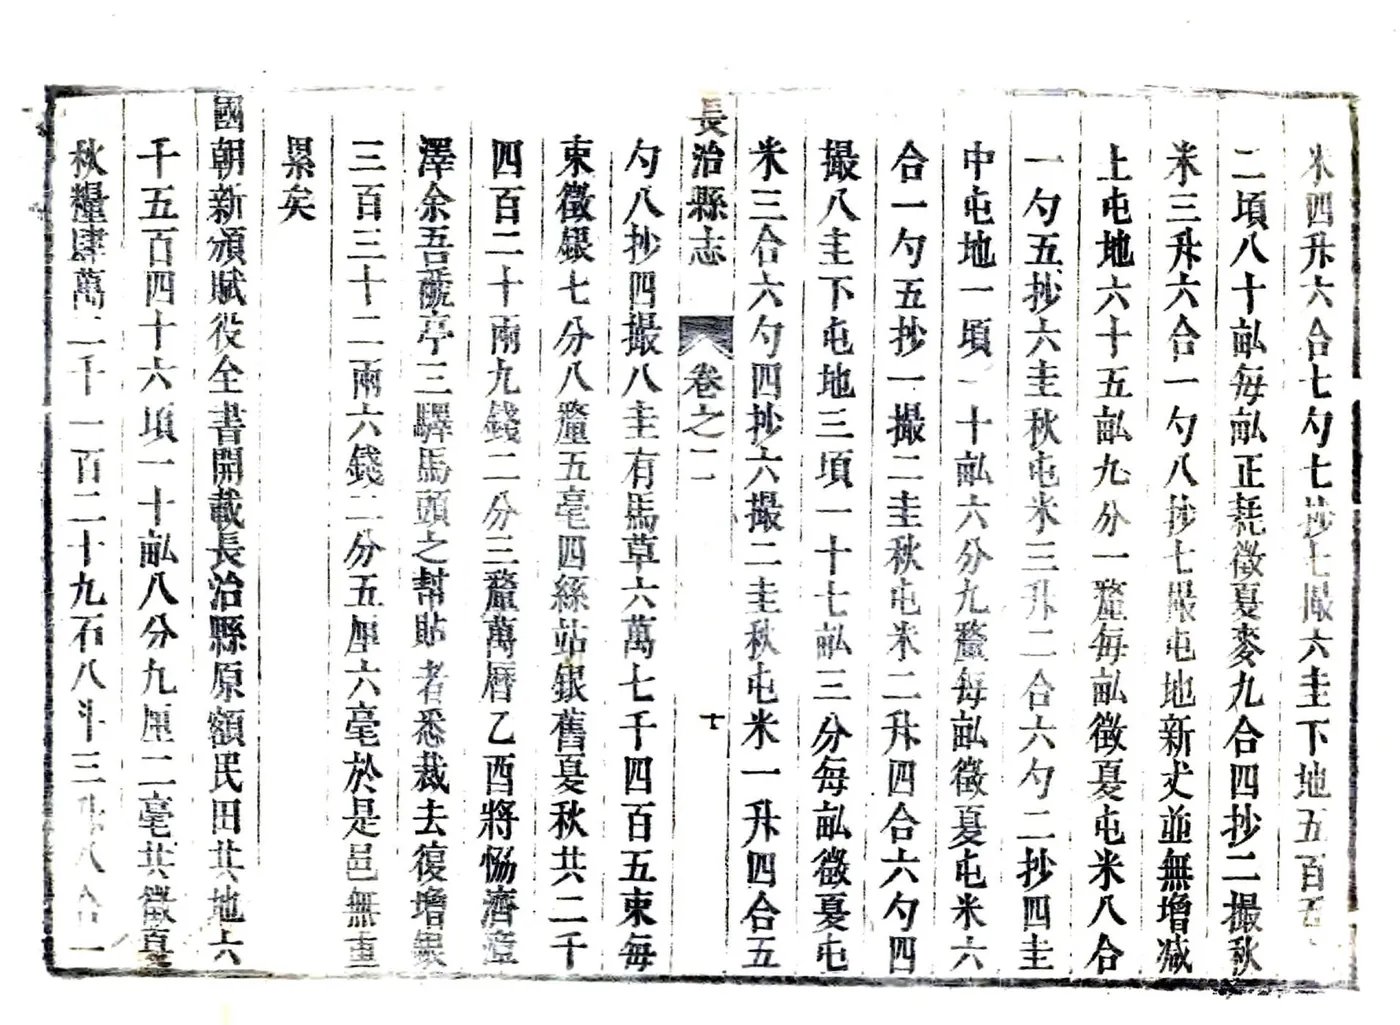 米四升六合七勺七抄七撮六圭下地五百五
二頃八十畝每畝正耗徵夏麥九合四抄二撮秋
米三升六合一勺八抄七撮屯地新丈並無增減
上屯地六十五畝九分一釐每畝徵夏屯米八合
一勺五抄六圭秋屯米三升二合六勺二抄四圭
中屯地一頃一十畝六分九釐每畝徵夏屯米六
合一勺五抄一撮二圭秋屯米二升四合六勺四
撮八圭下屯地三頃一十七畝三分每畝徵夏屯
米三合六勺四抄六撮二圭秋屯米一升四合五
長治縣志 卷之二 十
勺八抄四撮八圭有馬草六萬七千四百五束每
束徵銀七分八釐五毫四絲站銀舊夏秋共二千
四百二十兩九錢二分三釐萬曆乙酉將恊濟
澤余吾褫亭三驛馬頭之幫貼者悉裁去復增銀
三百三十二兩六錢二分五厘六毫於是邑無重
累矣
國朝新頒賦役全書開載長治縣原額民田共地六
千五百四十六頃一十畝八分九厘二毫共徵夏
秋糧肆萬二千一百二十九石八斗三升八合一